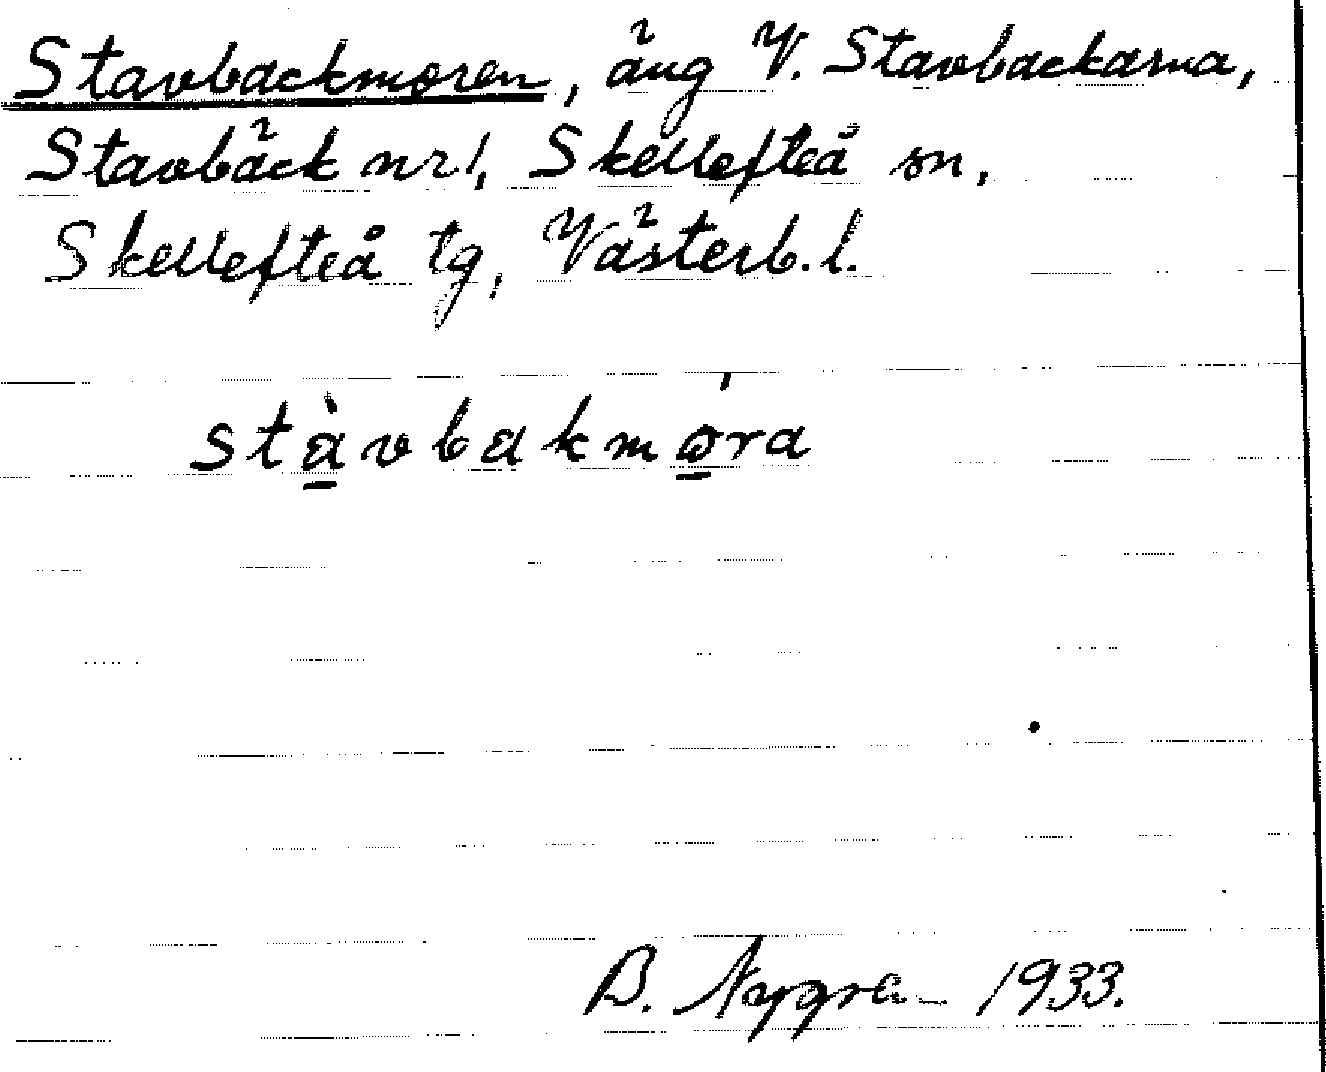 Stavbackmoren, äng V. Stavbackarna,
Stavbäck nr 1, Skellefteå sn,
Skellefteå tg, Västerb. l.
stàvbakmǫ́ra
B. Nygren 1933.